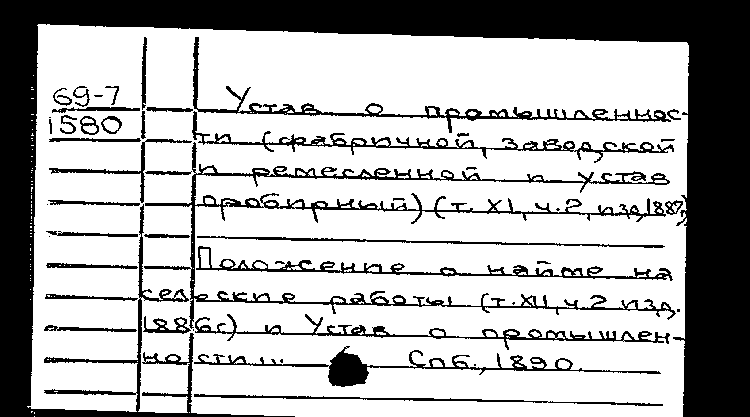 69-7
1580
Устав о промышленнос-
ти (фабричной, заводской
и ремесленной и устав
пробирный) (т. XI, ч. 2, изд. 1887),
Положение о найме на
сельские работы (т. XII, ч. 2 изд.
1886г) и Устав о промышлен-
ности... Спб., 1890.